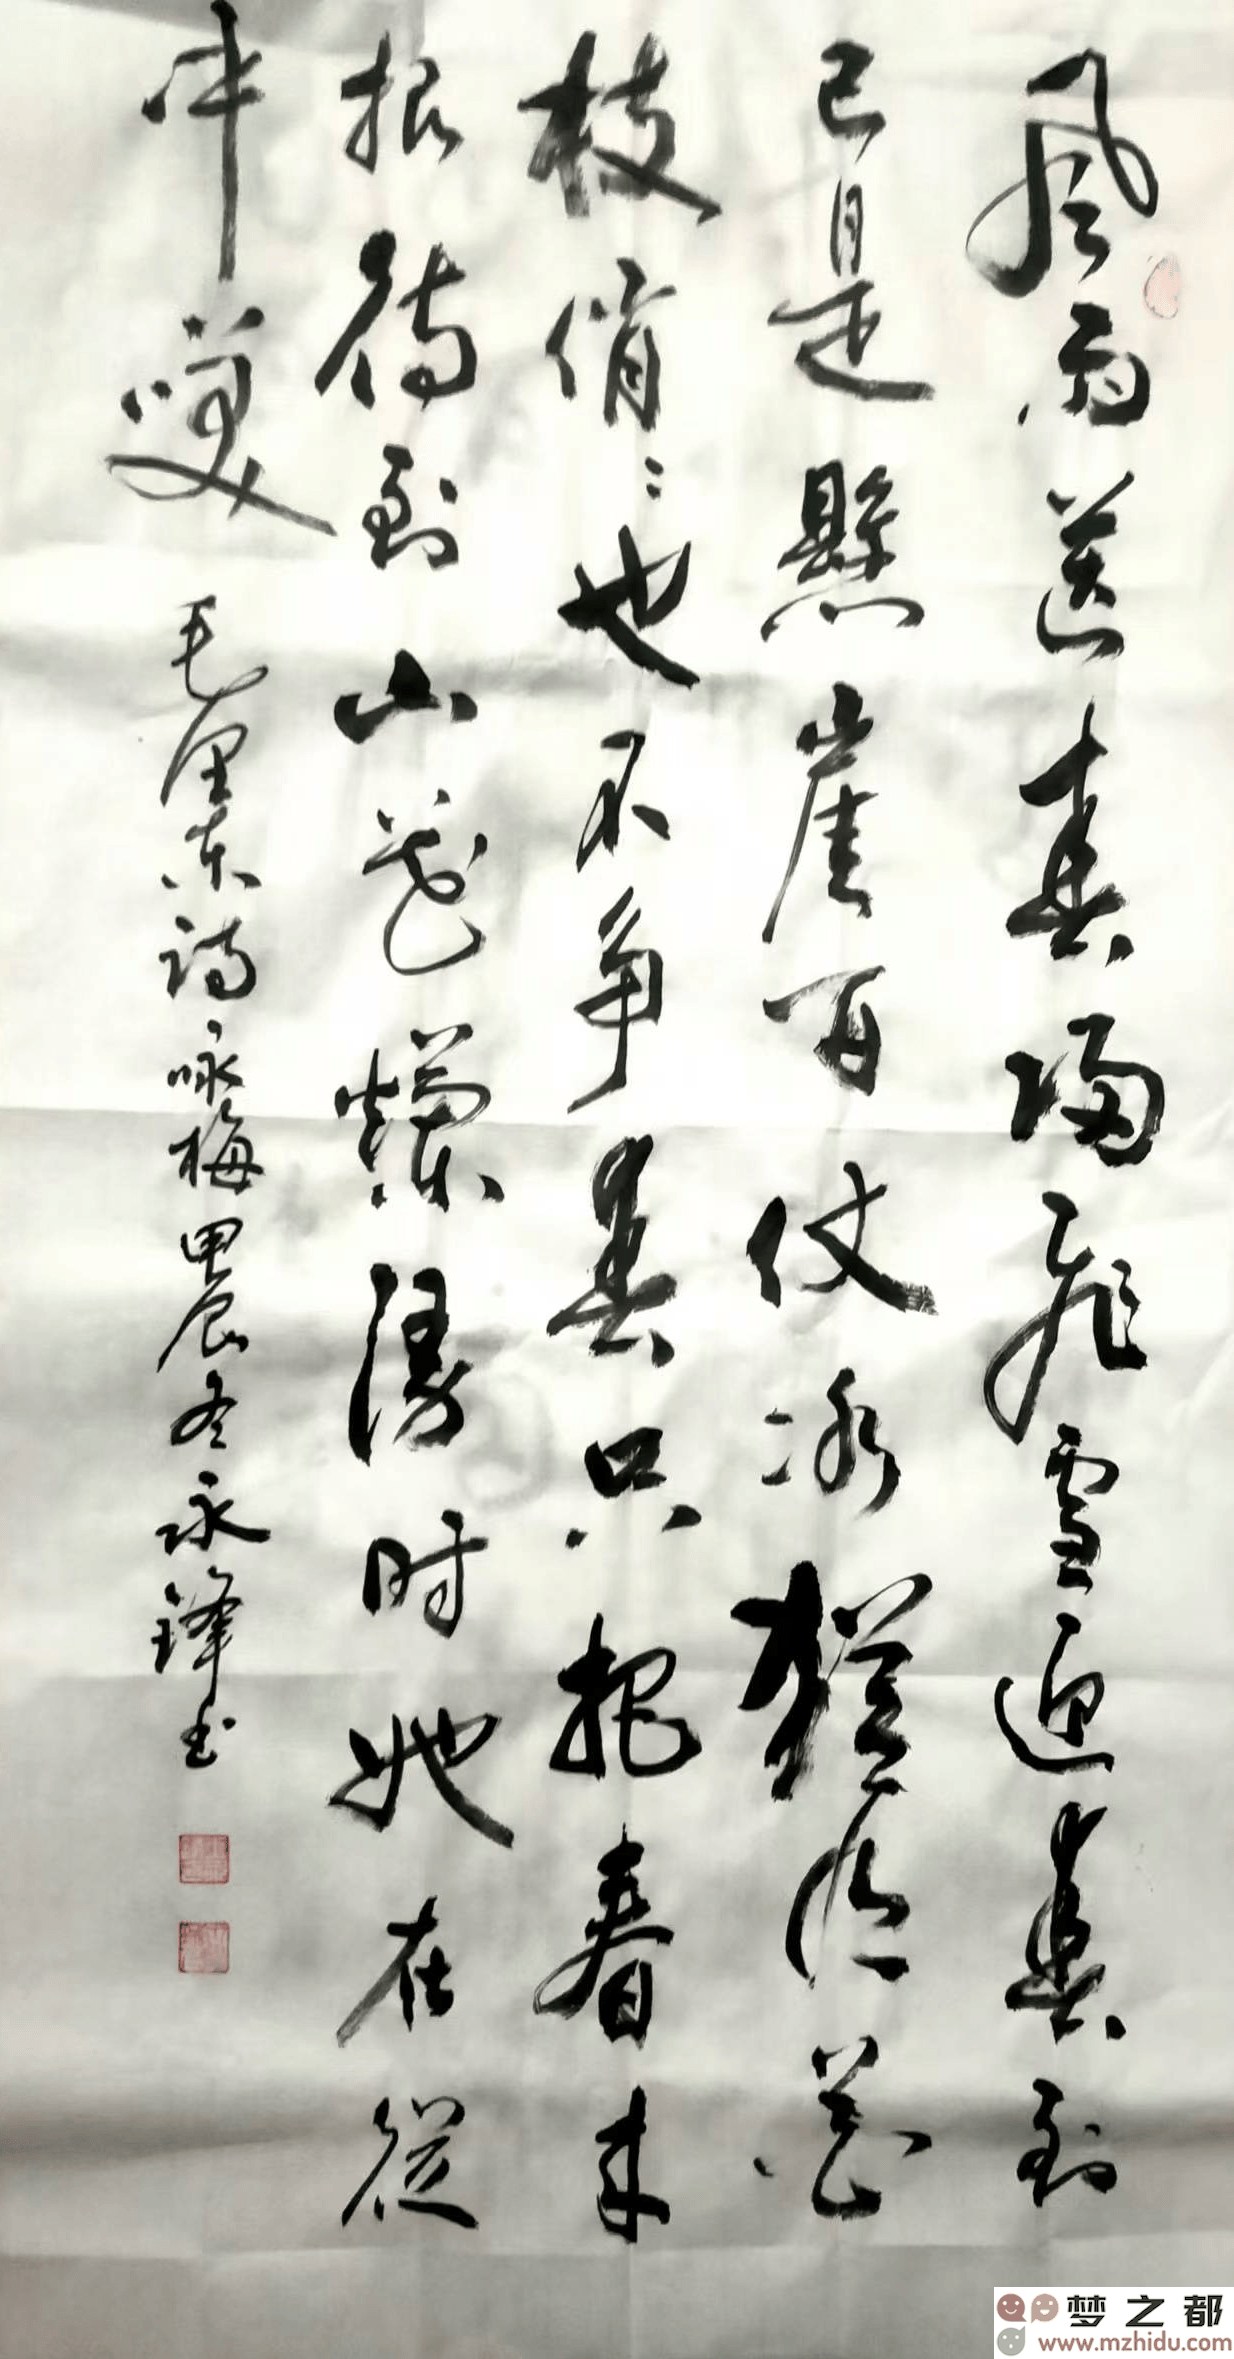 风雨送春归飛雪迎春到
已是懸崖百仗冰猶花
枝俏〻也不争春只把春来
报待到山花爛漫时她在從
中笑
毛泽东诗咏梅甲辰冬永鋒书
梦之都
www.mzhidu.com